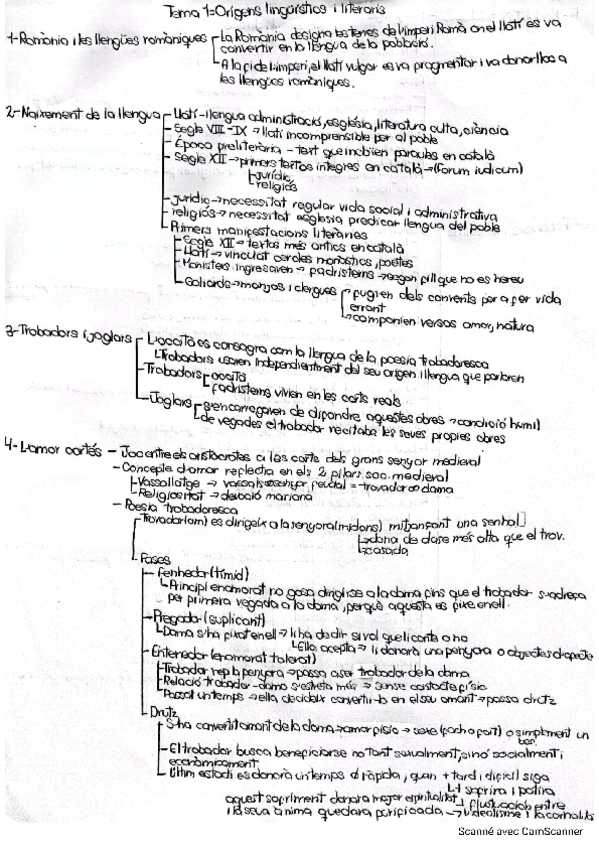 Tema 1: Orígens lingüístics i literaris
1-Romània i les llengües romàniques
La Romània designa les terres de l'imperi Romà on el llatí es va
convertir en la llengua de la població.
A la fi de l'imperi, el llatí vulgar es va fragmentar i va donar lloc a
les llengües romàniques.
2-Naixement de la llengua
Llatí-llengua administració, església, literatura culta, ciència
Segle VIII-IX → llatí incomprensible per al poble
Època preliterària - text que incloïen paraules en català
Segle XII → primers textos íntegres en català → (Forum iudicum)
jurídic,
religiós
jurídic → necessitat regular vida social i administrativa
religiós → necessitat església predicar llengua del poble
Primera manifestacions literàries
Segle XII → textos més antics en català
Llatí → vinculat cercles monàstics, poetes
Monistirs ingresaven → fadristerns → segon fill que no es hereu
Goliards → monjos i clergues
fugien dels convents per a fer vida
errant
componien versos amor, natura
3-Trobadors i joglars
L'occità es consagra com la llengua de la poesia trobadoresca
Trobadors usaren independientment del seu origen i llengua que parlaren
Trobadors
occità
fadristerns vivien en les corts reals
Joglars
s'encarregaven de difondre aquestes obres → condició humil
de vegades el trobador recitaba les seves propies obres
4-L'amor cortés - Joc entre els aristòcrates a las corts dels grans senyor medieval
- Concepte d'amor reflectia en els 2 pilars soc. medieval
Vassallatge → vassalls senyor feudal = trovador dama
Religiositat → devoció mariana
- Poesia trobadoresca
Trovador (om) es dirigeix a la senyora (midons) mitjançant una senhal
dona de clase més alta que el trov.
casada
Fases
Fenhedor (tímid)
Principi enamorat no gosa dirigirse a la dama fins que el trobador s'adreça
per primera vegada a la dama, perquè aquesta es fixe en ell.
Pregador (suplicant)
Dama s'ha fixat en ell → li ha de dir si vol que li canta o no
Ella accepta → li donarà una penyora o objectes d'afecte
Entenedor (enamorat tolerat)
Trobador rep la penyora → passa a ser trobador de la dama
Relació trobador-dama s'estreta més → sense contacte físic
Passat un temps → ella decideix convertir-lo en el seu amant → passa drutz
Drutz
S'ha convertit amant de la dama → amor físic → sexe (fach o fait) o simplement un
bes.
El trobador busca beneficiarse no tant sexualment, sinó socialment i
econòmicament
Últim estadi es donarà un temps d ràpida, quan + tard i difícil siga
+ sofrira i patira
aquest sofriment donara major espiritualitat
i la seua ànima quedara purificada
fluctuación entre
l'idealisme i la carnalitat
Scanné avec CamScanner